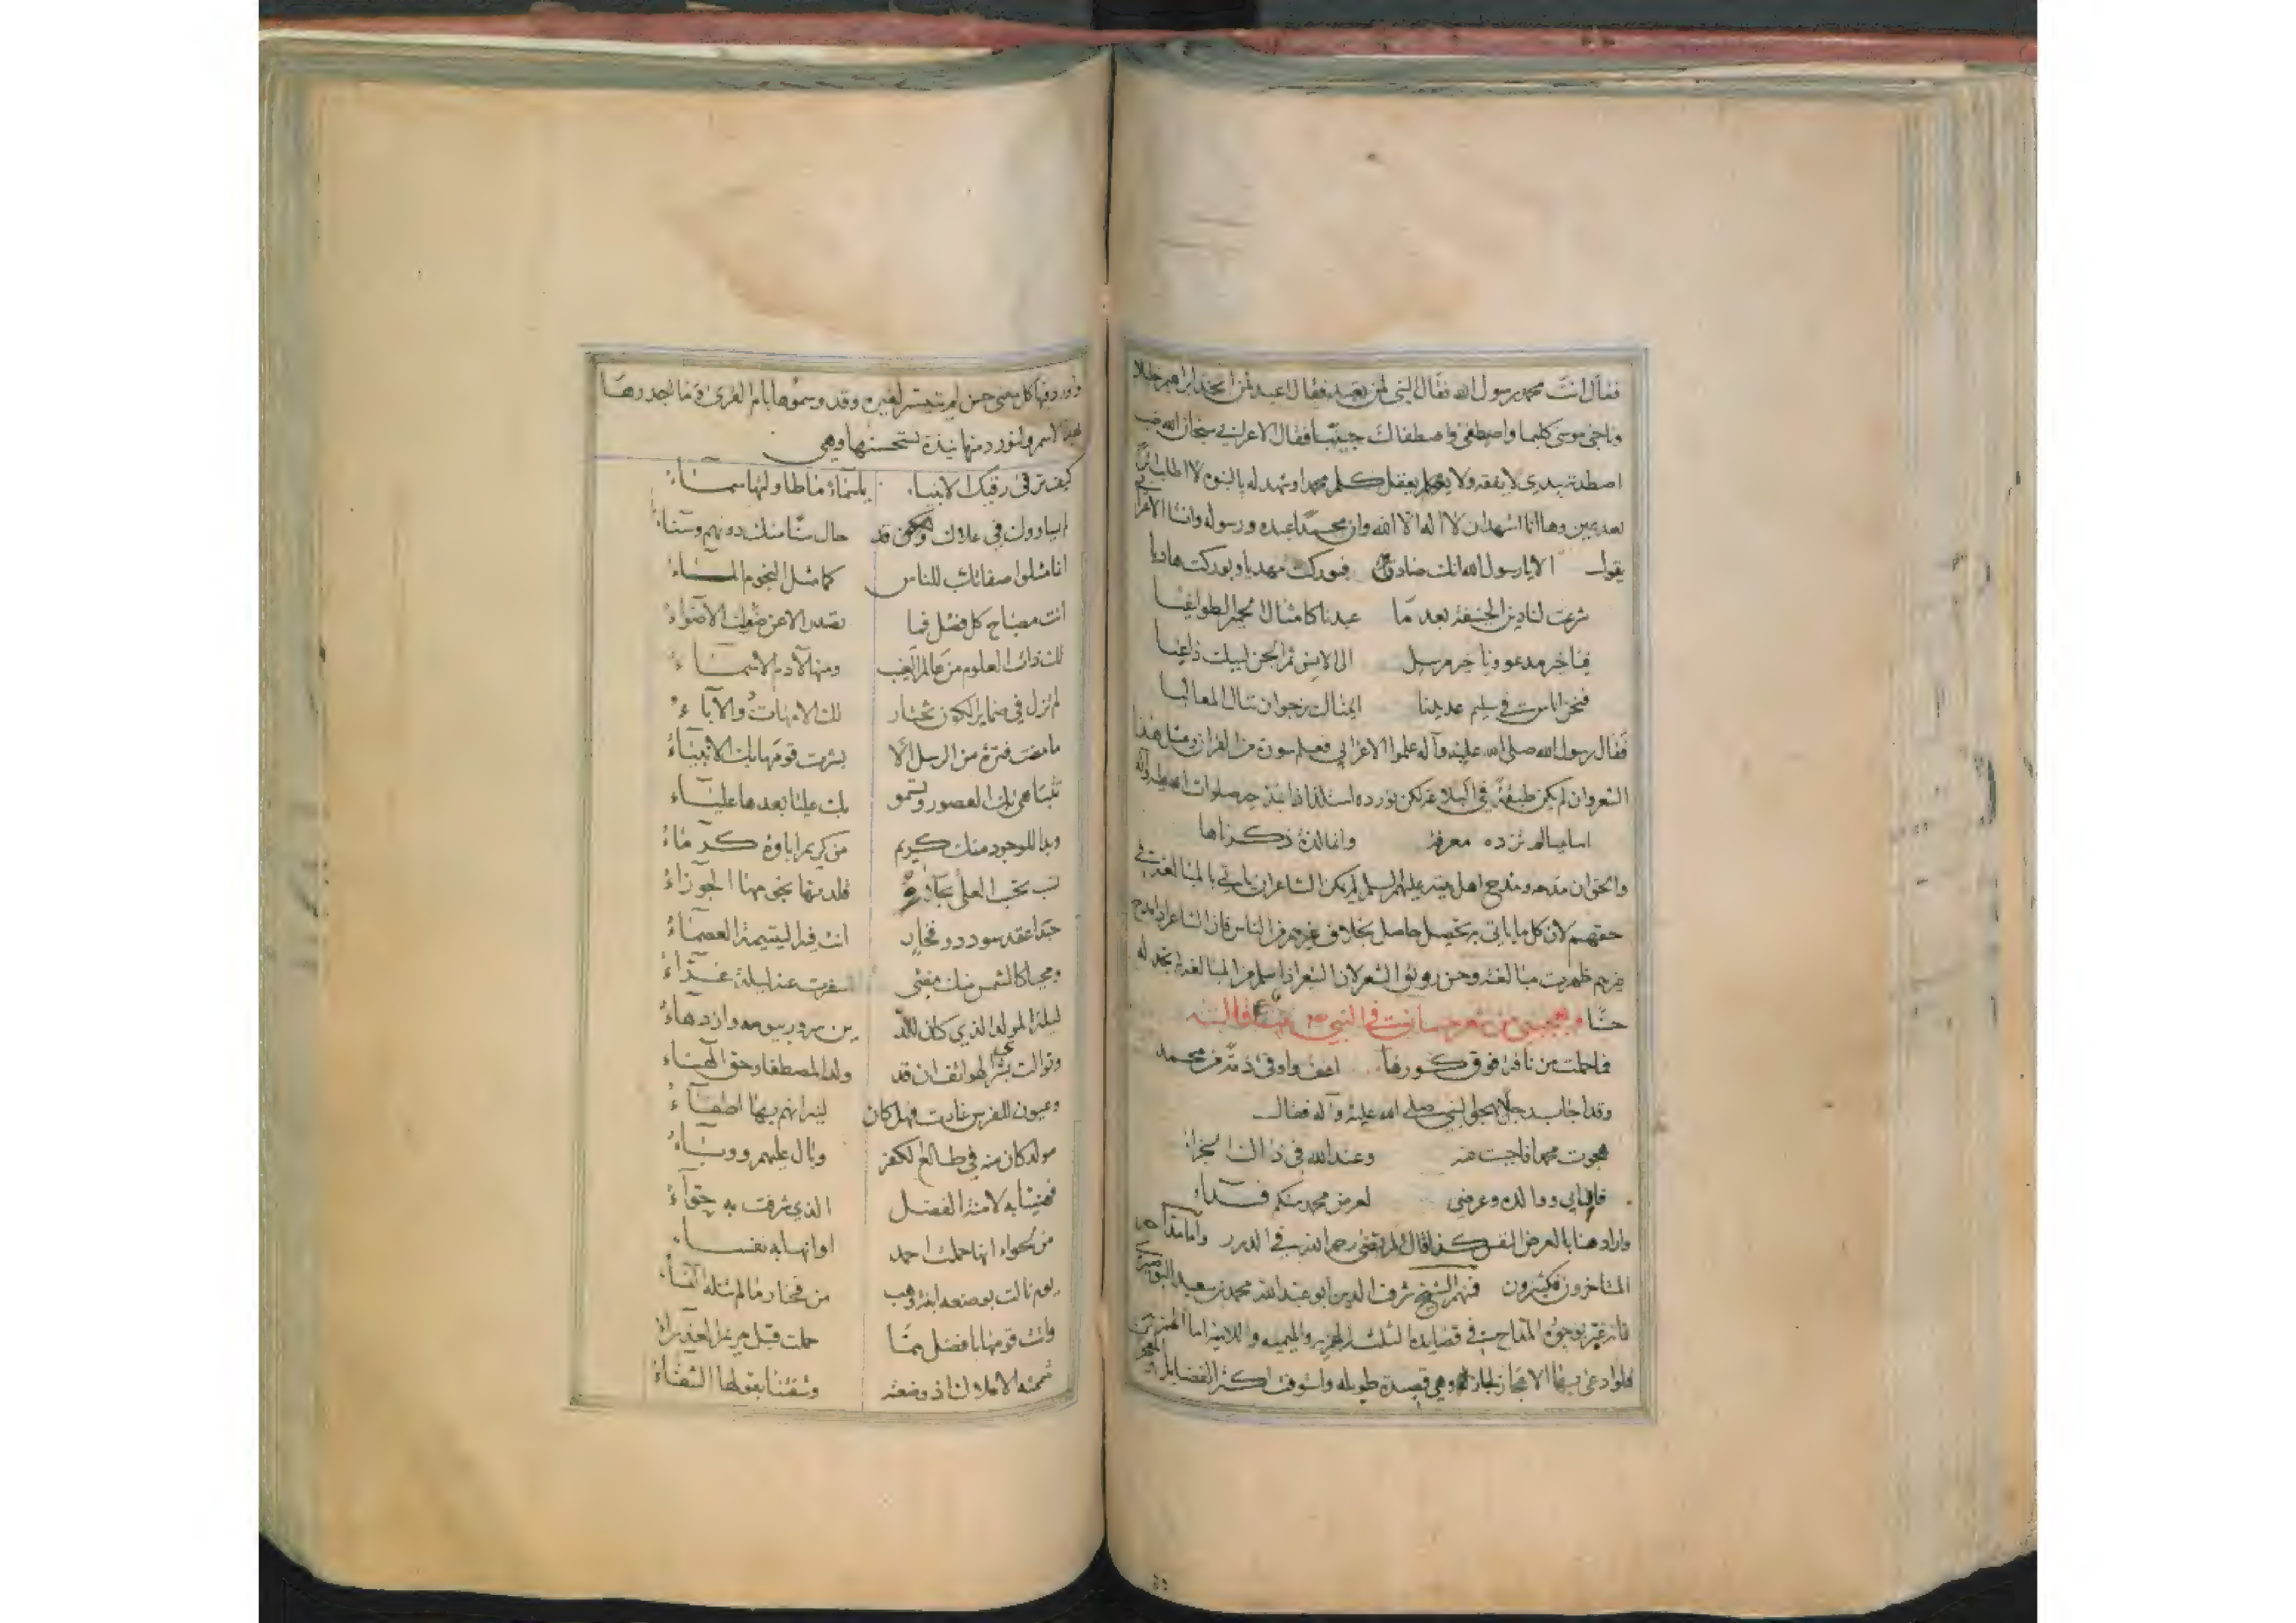 فقال انت محمد رسول الله فقال النبي لمن تعبد فقال اعبد لمن اتخذ ابراهيم خليلا
وناجى موسى كليما واصطفى واصطفاك حبيبا فقال الاعرابي سبحان الله ضب
اصطدته بيدي لا يفقه ولا يعقل كلم محمدا وشهد له بالنبوة لا اطلب اثرا
بعد عين وها انا اشهد ان لا اله الا الله وان محمدا عبده ورسوله وانشا الاعرابي
يقول الا يا رسول الله انك صادق فبوركت مهديا وبوركت هاديا
شرعت لنا دين الحنيفة بعد ما عبدنا كامثال الحمير الطواغيا
فيا خير مدعو ويا خير مرسل الى الانس ثم الجن لبيك داعيا
فنحن اناس من سليم عديدنا اتيناك نرجو ان ننال المعاليا
فقال رسول الله صلى الله عليه وآله علموا الاعرابي فعلم سورة من القران ومثل هذا
الشعر وان لم يكن طبقة في البلاغة لكن نورده استلذاذا بذكره صلوات الله عليه وآله
اساميا لم تزده معرفة وانما لذة ذكرناها
والحق ان مدحه ومدح اهل بيته عليهم السلم لم يكن الشاعر ان ياتي بالمبالغة في
حقهم لان كل ما ياتي به تحصيل حاصل بخلاف غيرهم من الناس فان الشاعر اذا مدح
غيرهم ظهرت مبالغته وحسن رونق الشعر لان الشعر اذا سلم من المبالغة لم تجد له
حسنا ويعجبني من شعر حسان بن ثابت في النبي ص
فما حملت من ناقة فوق كورها اعف واوفى ذمة من محمد
وقد اجاب رجلا هجا النبي صلى الله عليه وآله فقال
هجوت محمدا فاجبت عنه وعند الله في ذاك الجزاء
فان ابي ووالده وعرضي لعرض محمد منكم فداء
واراد هنا بالعرض النفس كذا قال المرتضى رحمه الله في الدرر واما مداحه
المتاخرون فكثيرون فمنهم الشيخ شرف الدين ابو عبد الله محمد بن سعيد البوصيري
فانه غبر بوجوه المداحين في قصايده الثلث الهمزيه والميميه واللاميه اما الهمزية
فلو ادعى بها الاعجاز لجاز وهي قصيدة طويله واستوفى اكثر الفضايل والمعجز
واورد فيها كل معنى حسن لم يتيسر لغيره وقد وسموها بام القرى وما اجدرها
بهذا الاسم ولنورد منها نبذة نستحسنها وهي
كيف ترقى رقيك الانبياء يا سماء ما طاولتها سماء
لم يساووك في علاك وقد حال سنا منك دونهم وسناء
انما مثلوا صفاتك للناس كما مثل النجوم الماء
انت مصباح كل فضل فما تصدر الا عن ضوئك الاضواء
لك ذات العلوم من عالم الغيب ومنها لآدم الاسماء
لم تزل في ضماير الكون تختار لك الامهات والآباء
ما مضت فترة من الرسل الا بشرت قومها بك الانبياء
تتباهى بك العصور وتسمو بك علياء بعدها علياء
وبدا للوجود منك كريم من كريم اباؤه كرماء
نسب تحسب العلى بحلاه قلدتها نجومها الجوزاء
حبذا عقد سودد وفخار انت فيه اليتيمة العصماء
ومحيا كالشمس منك مضئ اسفرت عنه ليلة غراء
ليلة المولد الذي كان للد ين سرور بيومه وازدهاء
وتوالت بشرى الهواتف ان قد ولد المصطفى وحق الهناء
وعيون للفرس غارت فهل كان لنيرانهم بها اطفاء
مولد كان منه في طالع الكفر وبال عليهم ووباء
فهنيئا به لامنة الفضل الذي شرفت به حواء
من لحواء انها حملت احمد او انها به نفساء
يوم نالت بوضعه ابنة وهب من فخار ما لم تنله النساء
واتت قومها بافضل مما حملت قبل مريم العذراء
شمتته الاملاك اذ وضعته وشفتنا بقولها الشفاء